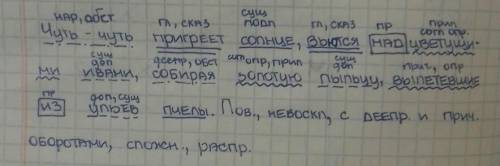 нар, обст гл, сказ сущ подл гл, сказ пр прил согл. опр.
Чуть-чуть пригреет солнце, вьются над цветущи-
сущ доп деепр, обст опр, прил сущ доп прич, опр
ми ивами, собирая золотую пыльцу, вылетевшие
пр доп, сущ
из ульев пчелы. Пов., невоскл, с деепр. и прич.
оборотами, сложн., распр.